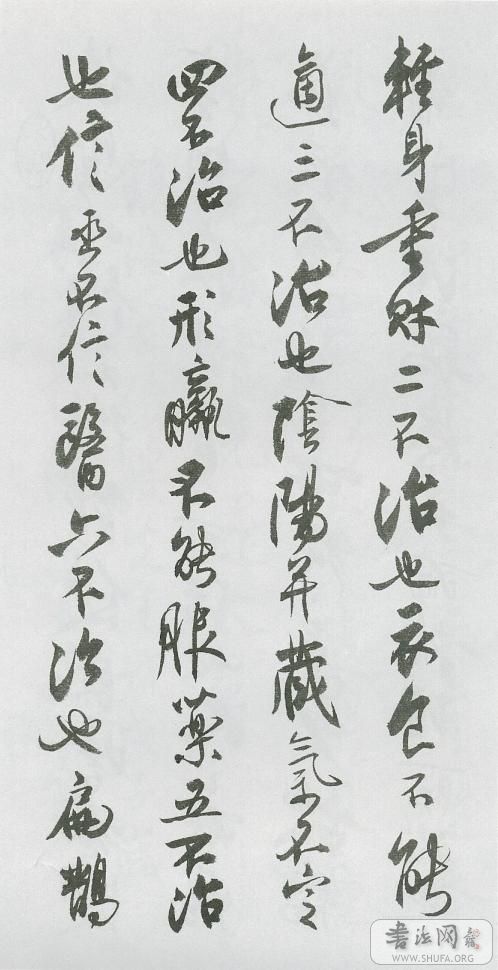 輕身重財二不治也衣食不能
適三不治也陰陽并藏氣不定
四不治也形羸不能服藥五不治
也信巫不信醫六不治也扁鵲
書法网
WWW.SHUFA.ORG